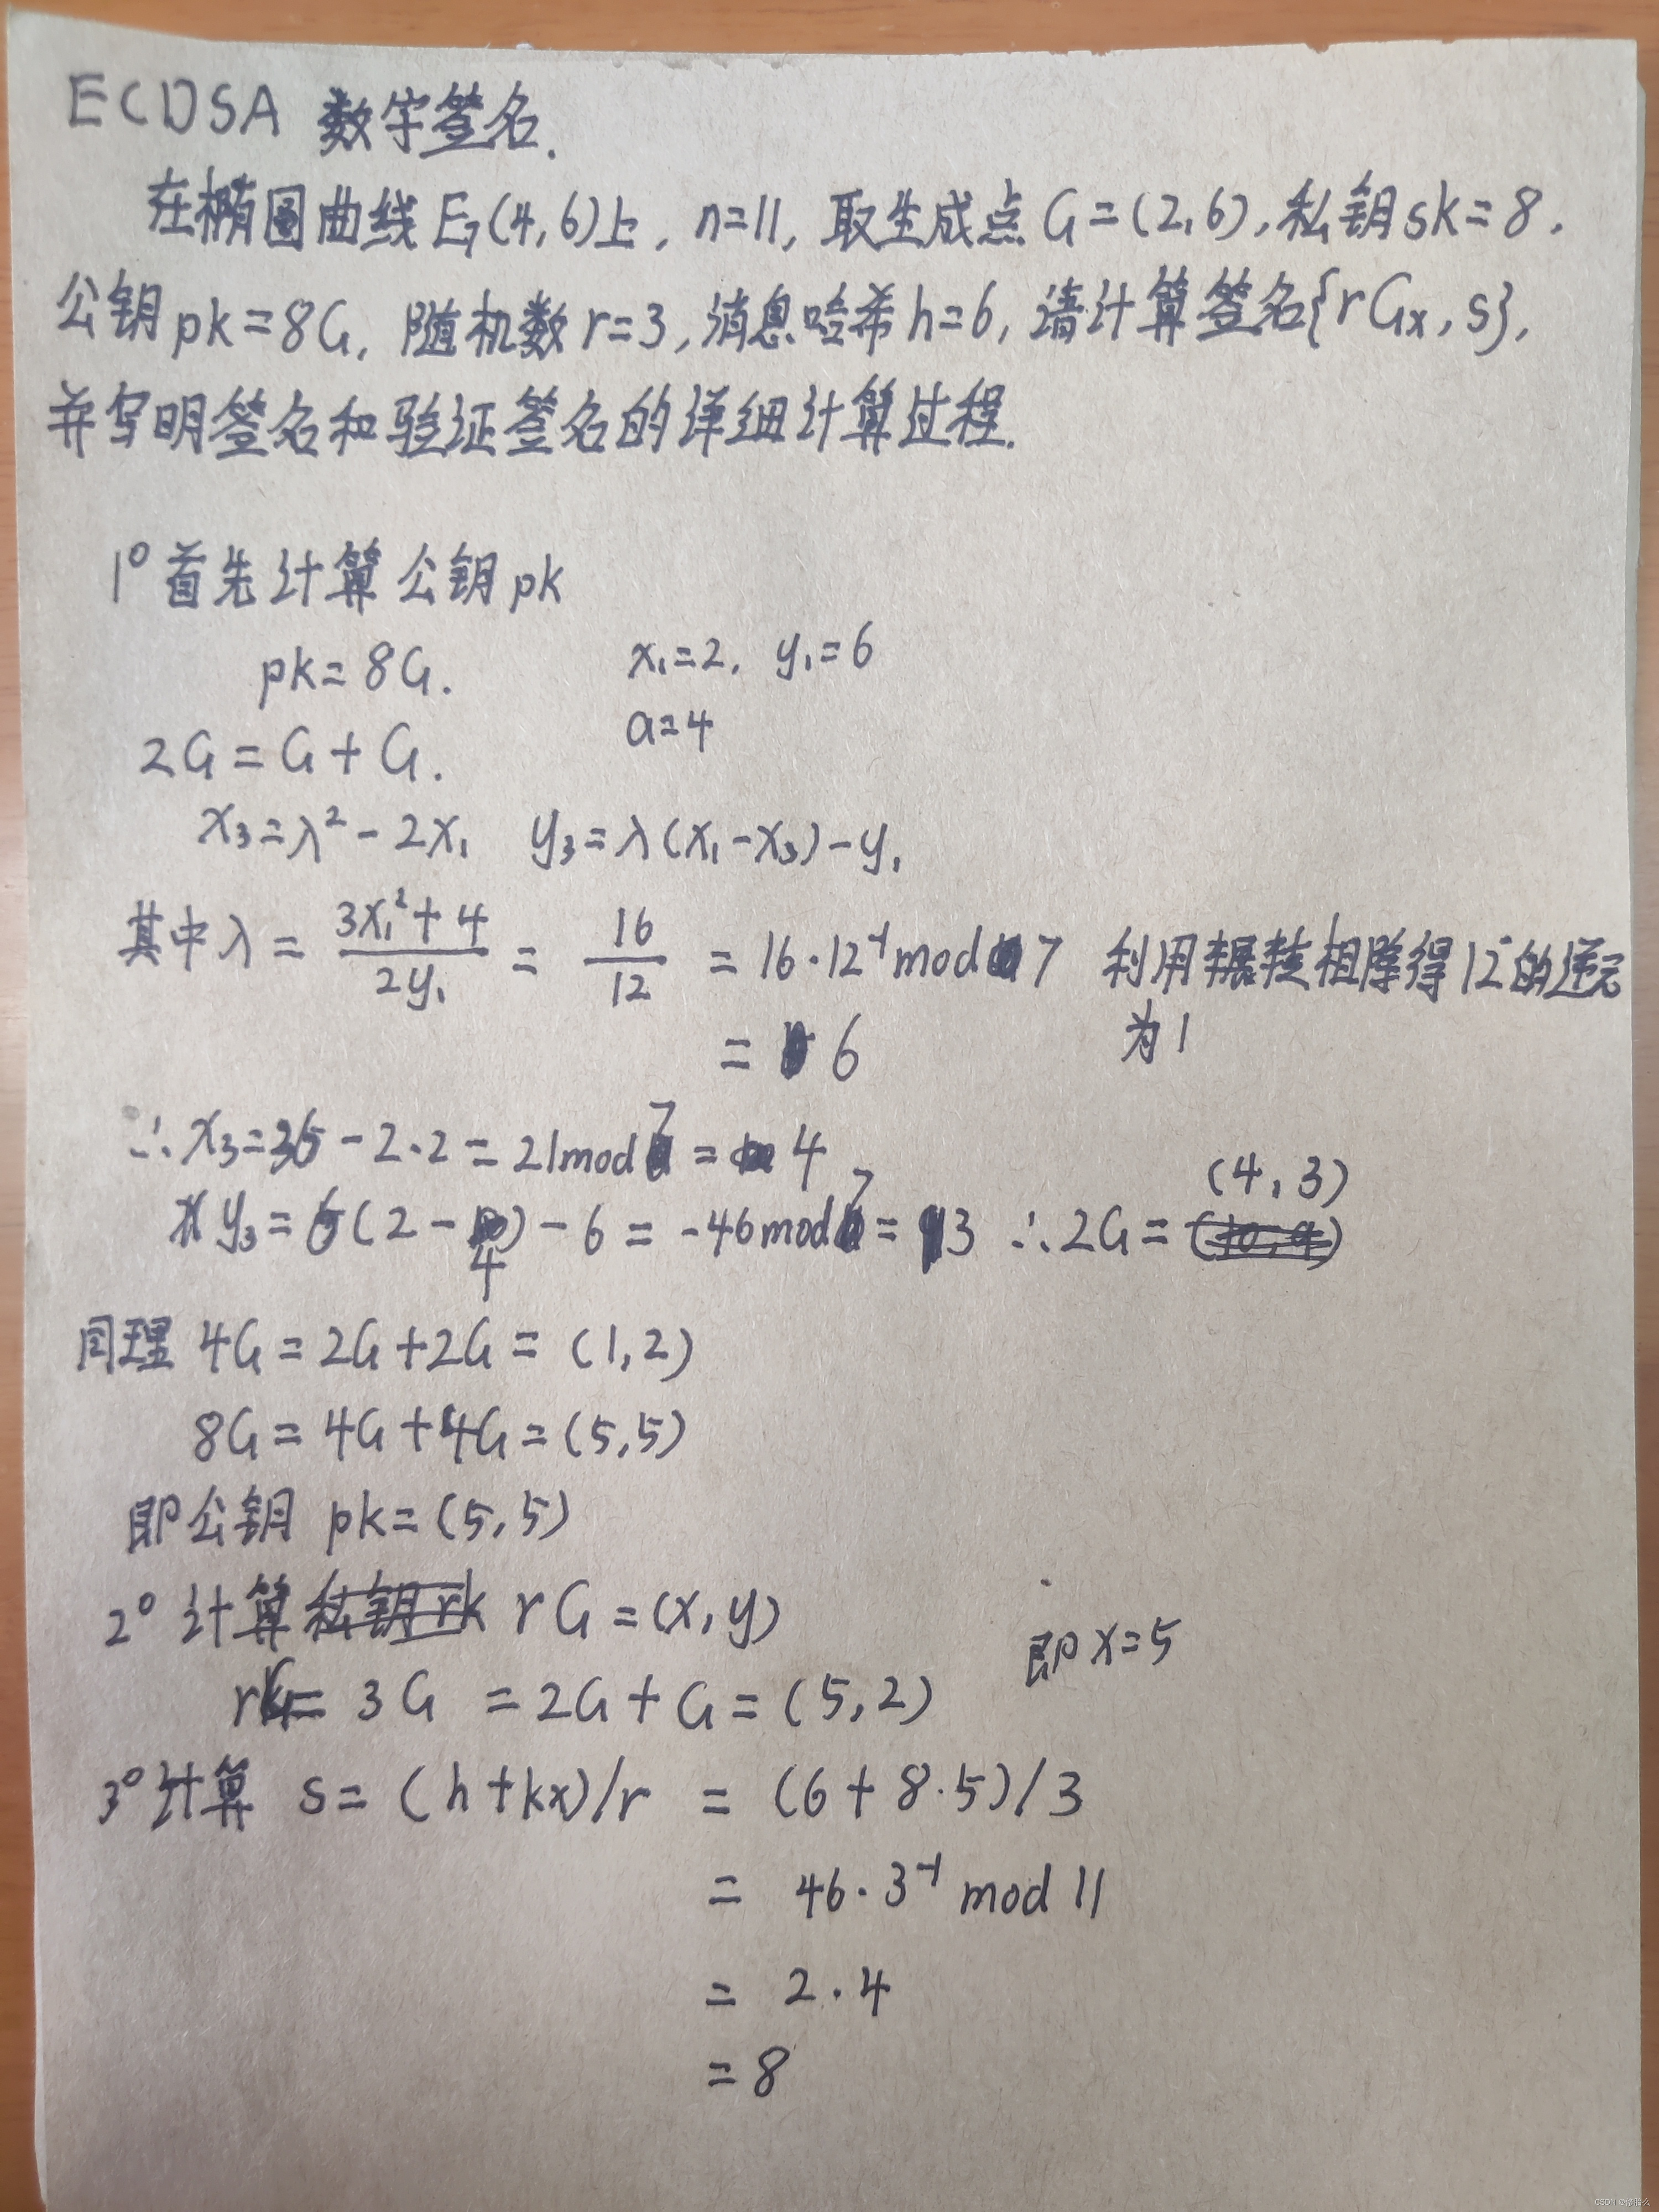 ECDSA 数字签名.
在椭圆曲线 E₇(4,6)上, n=11, 取生成点 G=(2,6), 私钥sk=8,
公钥pk=8G, 随机数r=3, 消息哈希h=6, 请计算签名{rGx, s},
并写明签名和验证签名的详细计算过程.
1° 首先计算公钥pk
pk=8G. x₁=2, y₁=6
2G=G+G. a=4
x₃=λ²-2x₁ y₃=λ(x₁-x₃)-y₁
其中 λ = (3x₁²+4)/(2y₁) = 16/12 = 16·12⁻¹mod 7 利用辗转相除得12的逆元
= 6 为1
∴x₃=36-2·2=21mod7=4
y₃=6(2-4)-6=-46mod7=3 ∴2G=(4,3)
同理 4G=2G+2G=(1,2)
8G=4G+4G=(5,5)
即公钥 pk=(5,5)
2° 计算 rG=(x,y)
rG=3G=2G+G=(5,2) 即x=5
3° 计算 s=(h+kx)/r=(6+8·5)/3
= 46·3⁻¹ mod 11
= 2·4
=8
CSDN